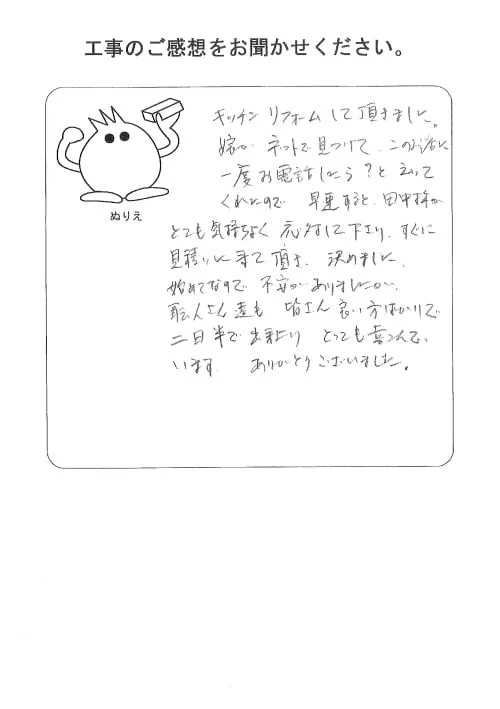 工事のご感想をお聞かせください。
キッチン リフォーム して頂きました。
嫁が ネットで見つけて、このお店に
一度お電話したら?と言って
くれたので 早速すると、田中様が
とても気持ちよく 応対して下さり、すぐに
見積りに来て頂き、決めました。
始めてなので 不安がありましたが、
職人さん達も 皆さん良い方ばかりで
二日半で出来上り とっても喜こんで
います。 ありがとうございました。
ぬりえ